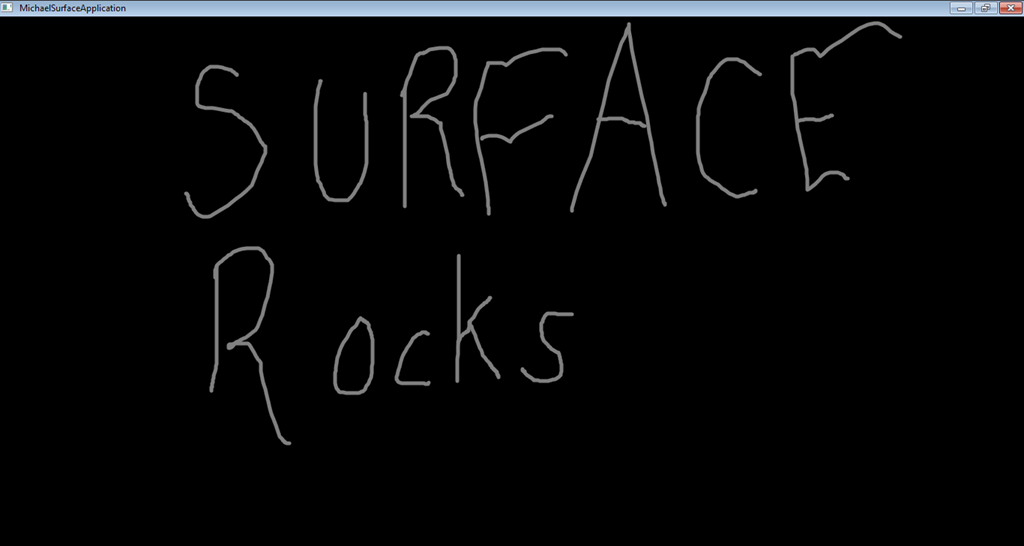 MichaelSurfaceApplication
SURFACE
Rocks